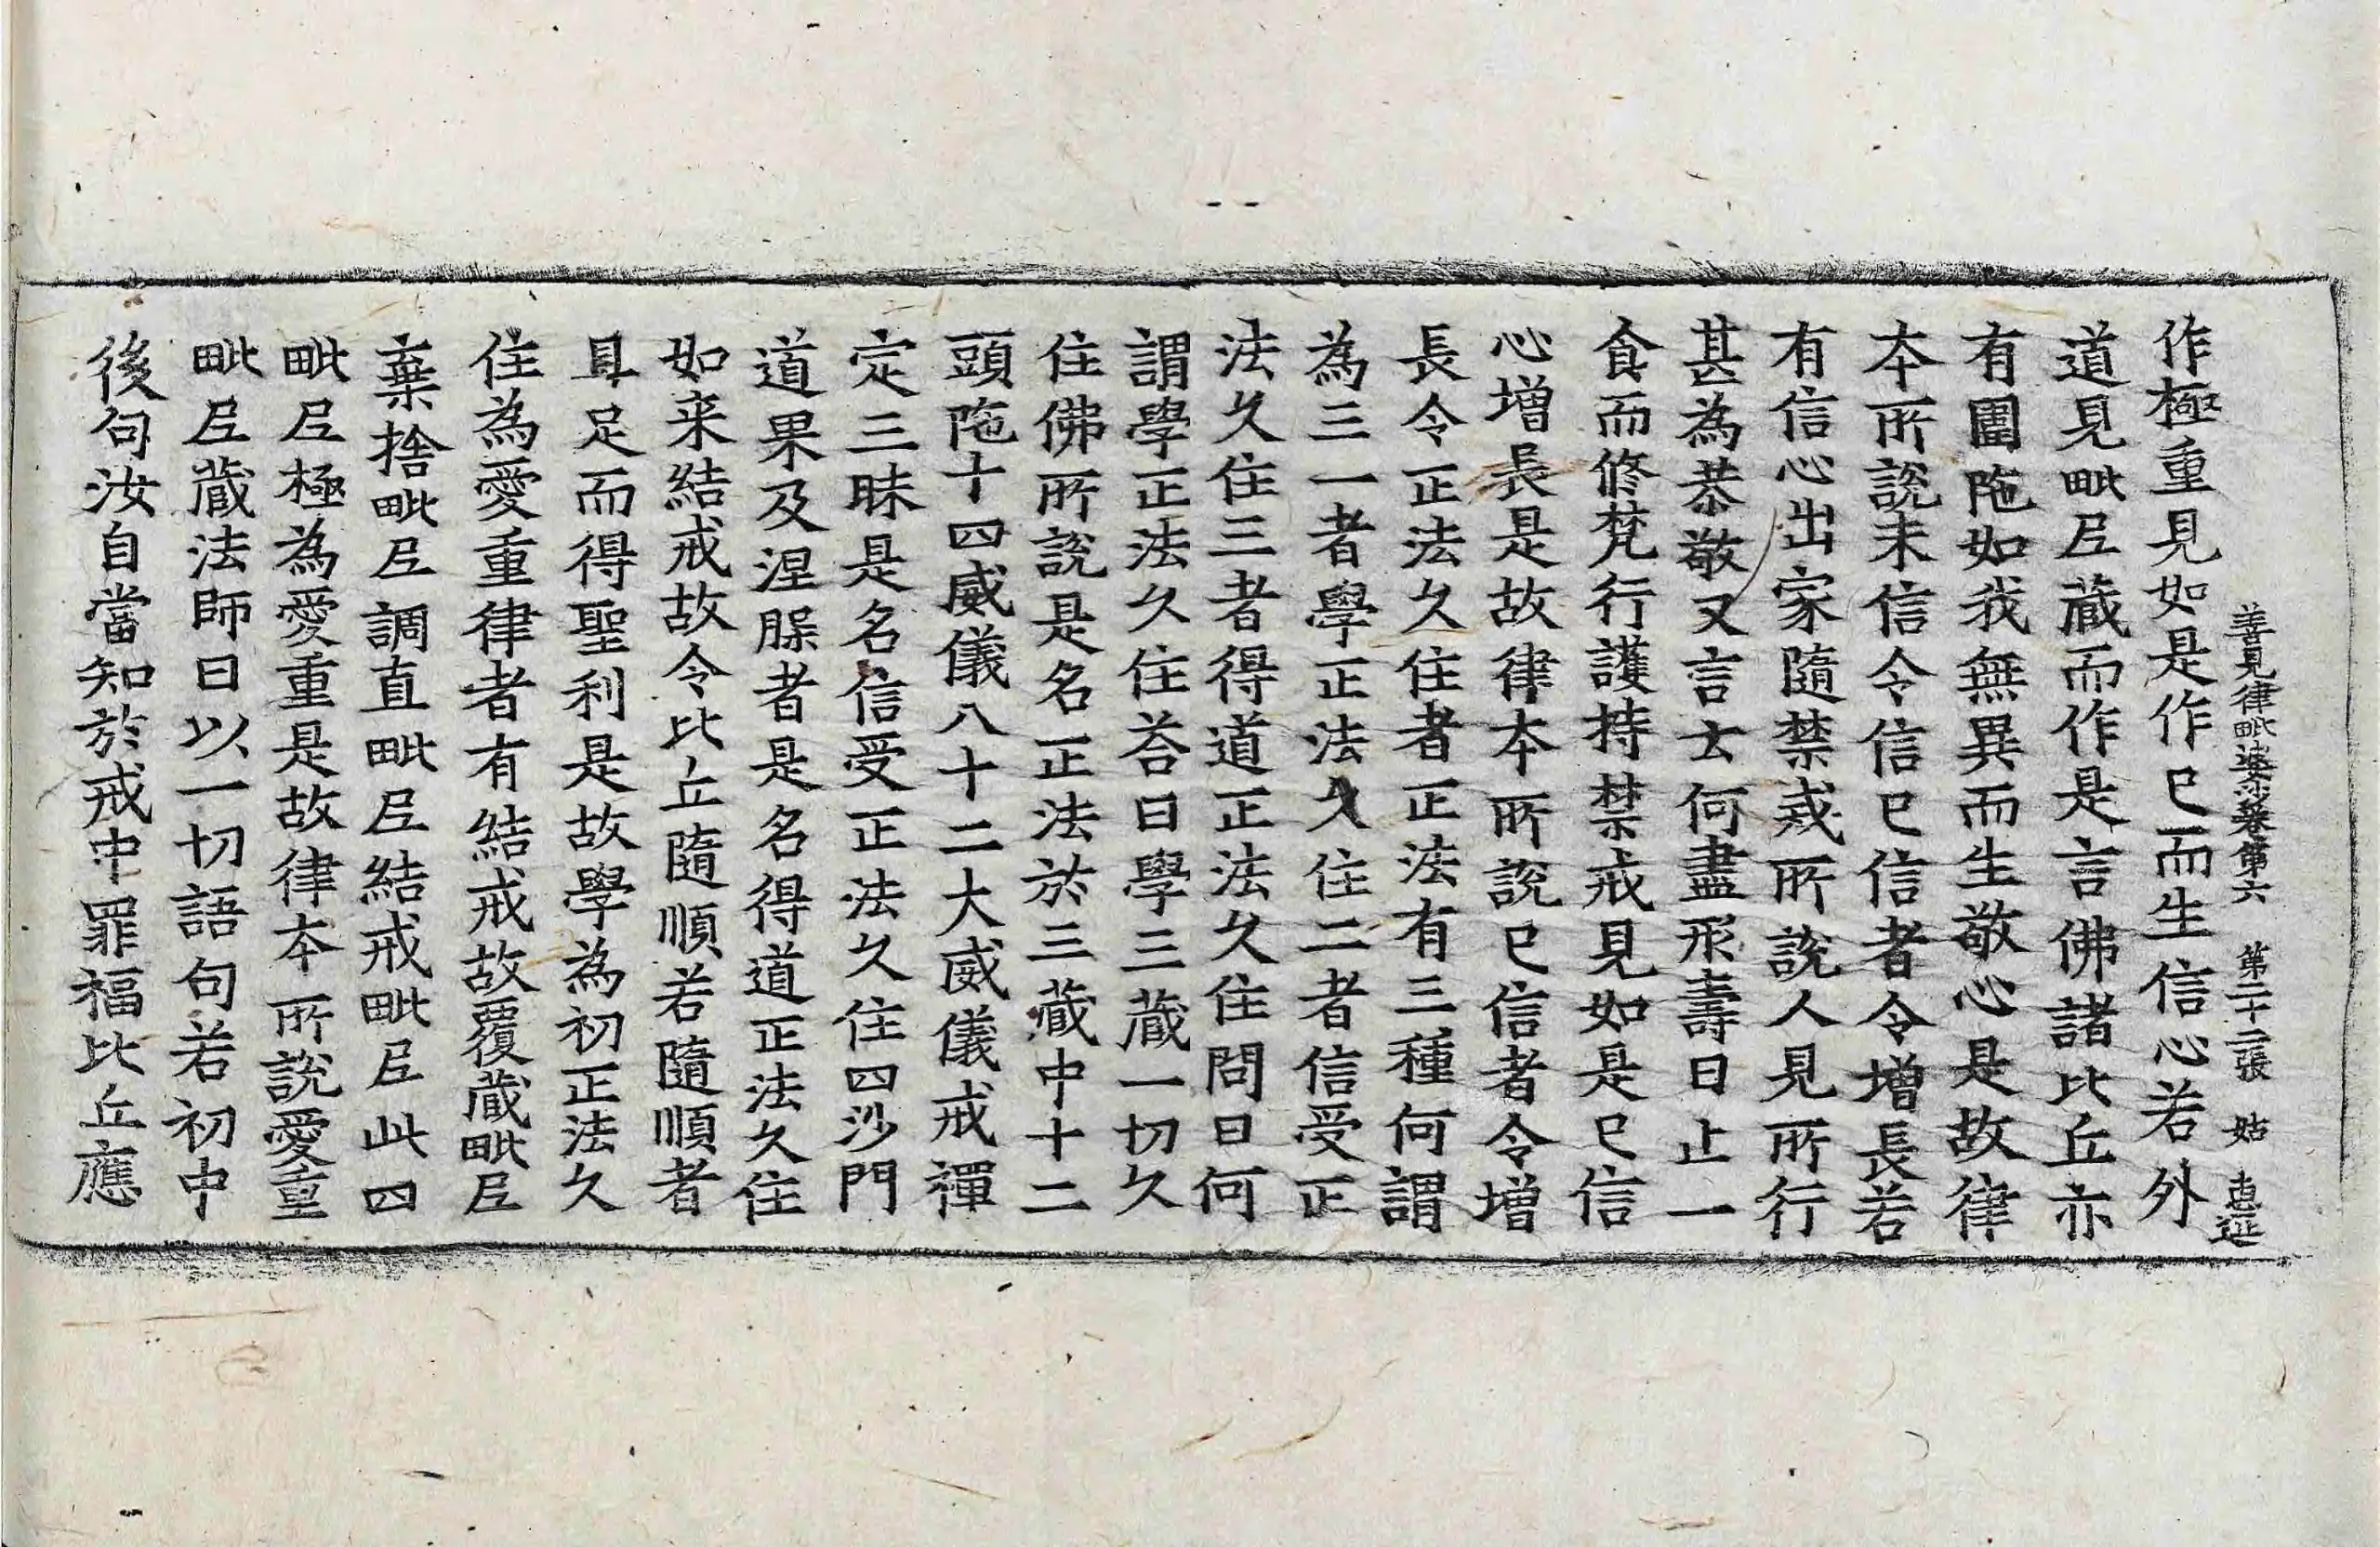 善見律毗婆沙卷第六 第二十二張 姑 惠延
作極重見如是作已而生信心若外
道見毗尼藏而作是言佛諸比丘亦
有圍陁如我無異而生敬心是故律
本所說未信令信已信者令增長若
有信心出家隨禁戒所說人見所行
甚為恭敬又言云何盡形壽日止一
食而修梵行護持禁戒見如是已信
心增長是故律本所說已信者令增
長令正法久住者正法有三種何謂
為三一者學正法久住二者信受正
法久住三者得道正法久住問曰何
謂學正法久住荅曰學三藏一切久
住佛所說是名正法於三藏中十二
頭陁十四威儀八十二大威儀戒禪
定三昧是名信受正法久住四沙門
道果及涅脲者是名得道正法久住
如来結戒故令比丘隨順若隨順者
具足而得聖利是故學為初正法久
住為愛重律者有結戒故覆藏毗尼
棄捨毗尼調直毗尼結戒毗尼此四
毗尼極為愛重是故律本所說愛重
毗尼藏法師曰以一切語句若初中
後句汝自當知於戒中罪福比丘應